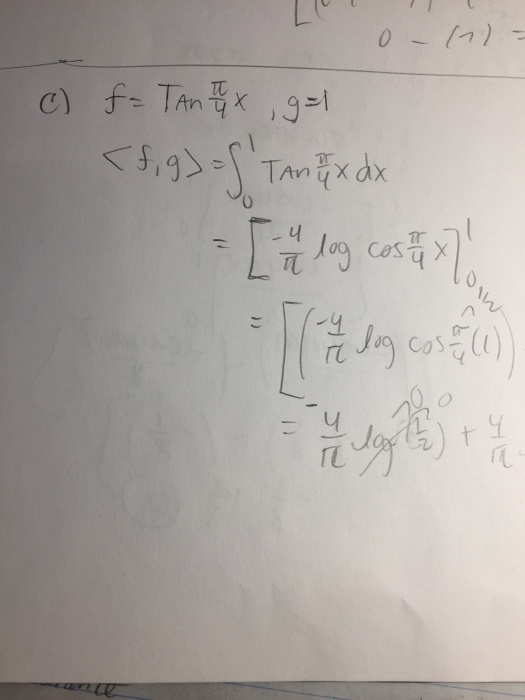 0 - (1) =
c) f = Tan π/4 x , g=1
<f,g> = ∫₀¹ Tan π/4 x dx
= [-4/π log cos π/4 x]₀¹
1/2
= [(-4/π log cos π/4 (1))
0 0
= -4/π log (1/2) + 4/π